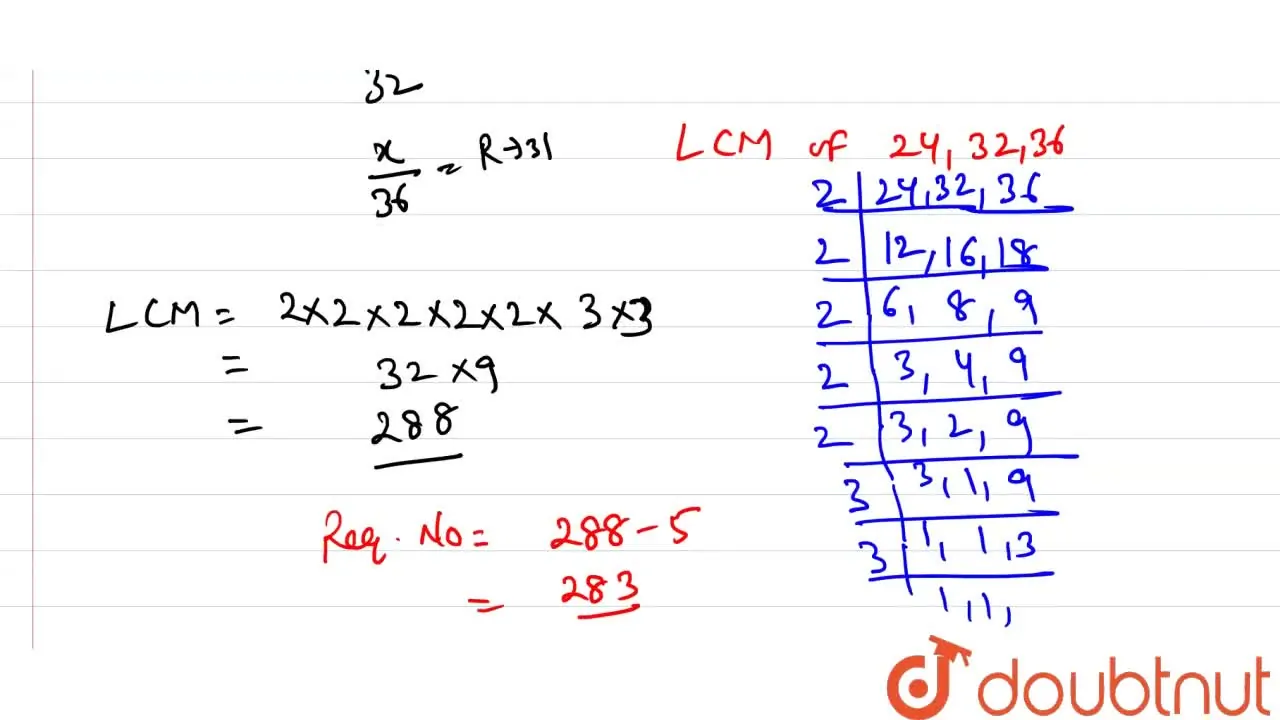 32
x/36 = R→31
LCM = 2×2×2×2×2×3×3
= 32×9
= 288
Req. No = 288-5
= 283
LCM of 24, 32, 36
2 | 24, 32, 36
2 | 12, 16, 18
2 | 6, 8, 9
2 | 3, 4, 9
2 | 3, 2, 9
3 | 3, 1, 9
3 | 1, 1, 3
1, 1,
doubtnut